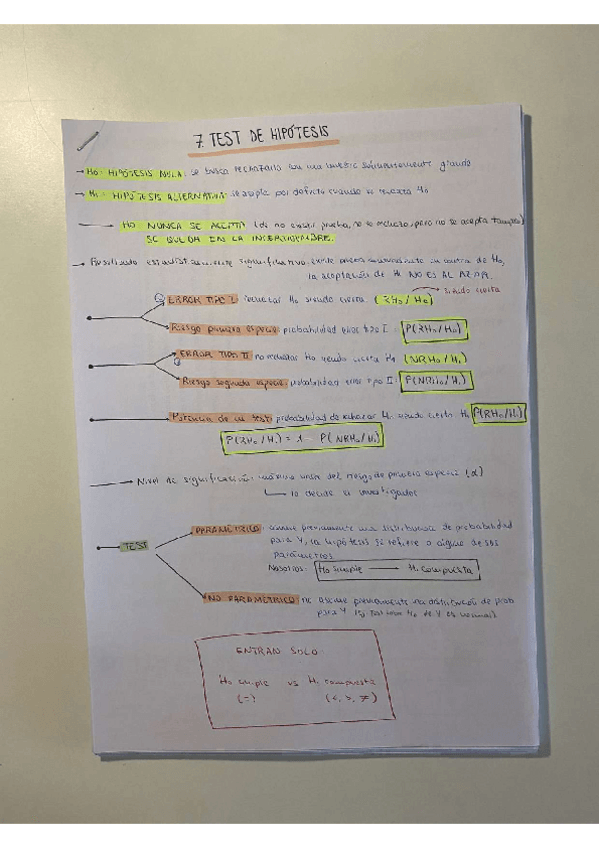 7. TEST DE HIPÓTESIS
→ H0: HIPÓTESIS NULA: se busca rechazarla con una muestra suficientemente grande
→ H1: HIPÓTESIS ALTERNATIVA: se acepta por defecto cuando se rechaza H0
→ H0 NUNCA SE ACEPTA (de no existir prueba, no se rechaza, pero no se acepta tampoco)
SE QUEDA EN LA INCERTIDUMBRE.
→ Resultado estadísticamente significativo: existe prueba en contra de H0,
la aceptación de H1 NO ES AL AZAR.
siendo cierta
ERROR TIPO I: rechazar H0 siendo cierta. (RH0/H0)
Riesgo primera especie: probabilidad error tipo I: P(RH0/H0)
ERROR TIPO II: no rechazar H0 siendo cierta H1 (NRH0/H1)
Riesgo segunda especie: probabilidad error tipo II: P(NRH0/H1)
Potencia de un test: probabilidad de rechazar H0 siendo cierta H1 P(RH0/H1)
P(RH0/H1) = 1 - P(NRH0/H1)
→ Nivel de significación: máximo valor del riesgo de primera especie (α)
lo decide el investigador
TEST
PARAMÉTRICO: asume previamente una distribución de probabilidad
para Y, la hipótesis se refiere a alguno de sus
parámetros
Nosotros: H0 simple → H1 compuesta
NO PARAMÉTRICO: no asume previamente una distribución de prob
para Y
ENTRAN SOLO:
H0 simple vs H1 compuesta
(=) (<, >, ≠)